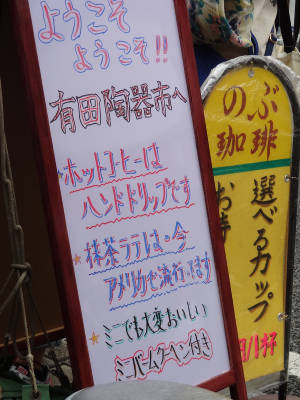 ようこそ
ようこそ!!
有田陶器市へ
ホットコーヒーは
ハンドドリップです
★抹茶ラテは今
アメリカで流行ってます
★ミニでも大変おいしい
ミニバームクーヘン付き
のぶ
珈琲
選べるカップ
お持
円/1杯